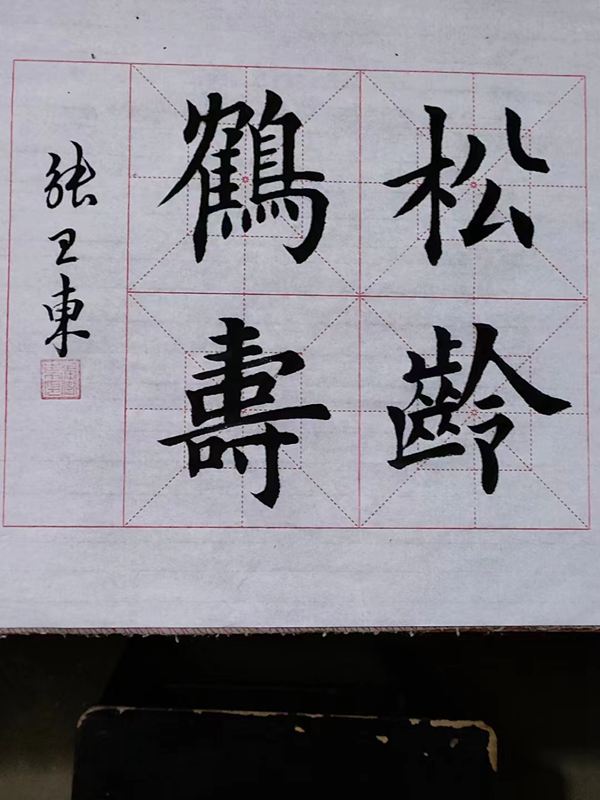 松齡
鶴壽
張卫東